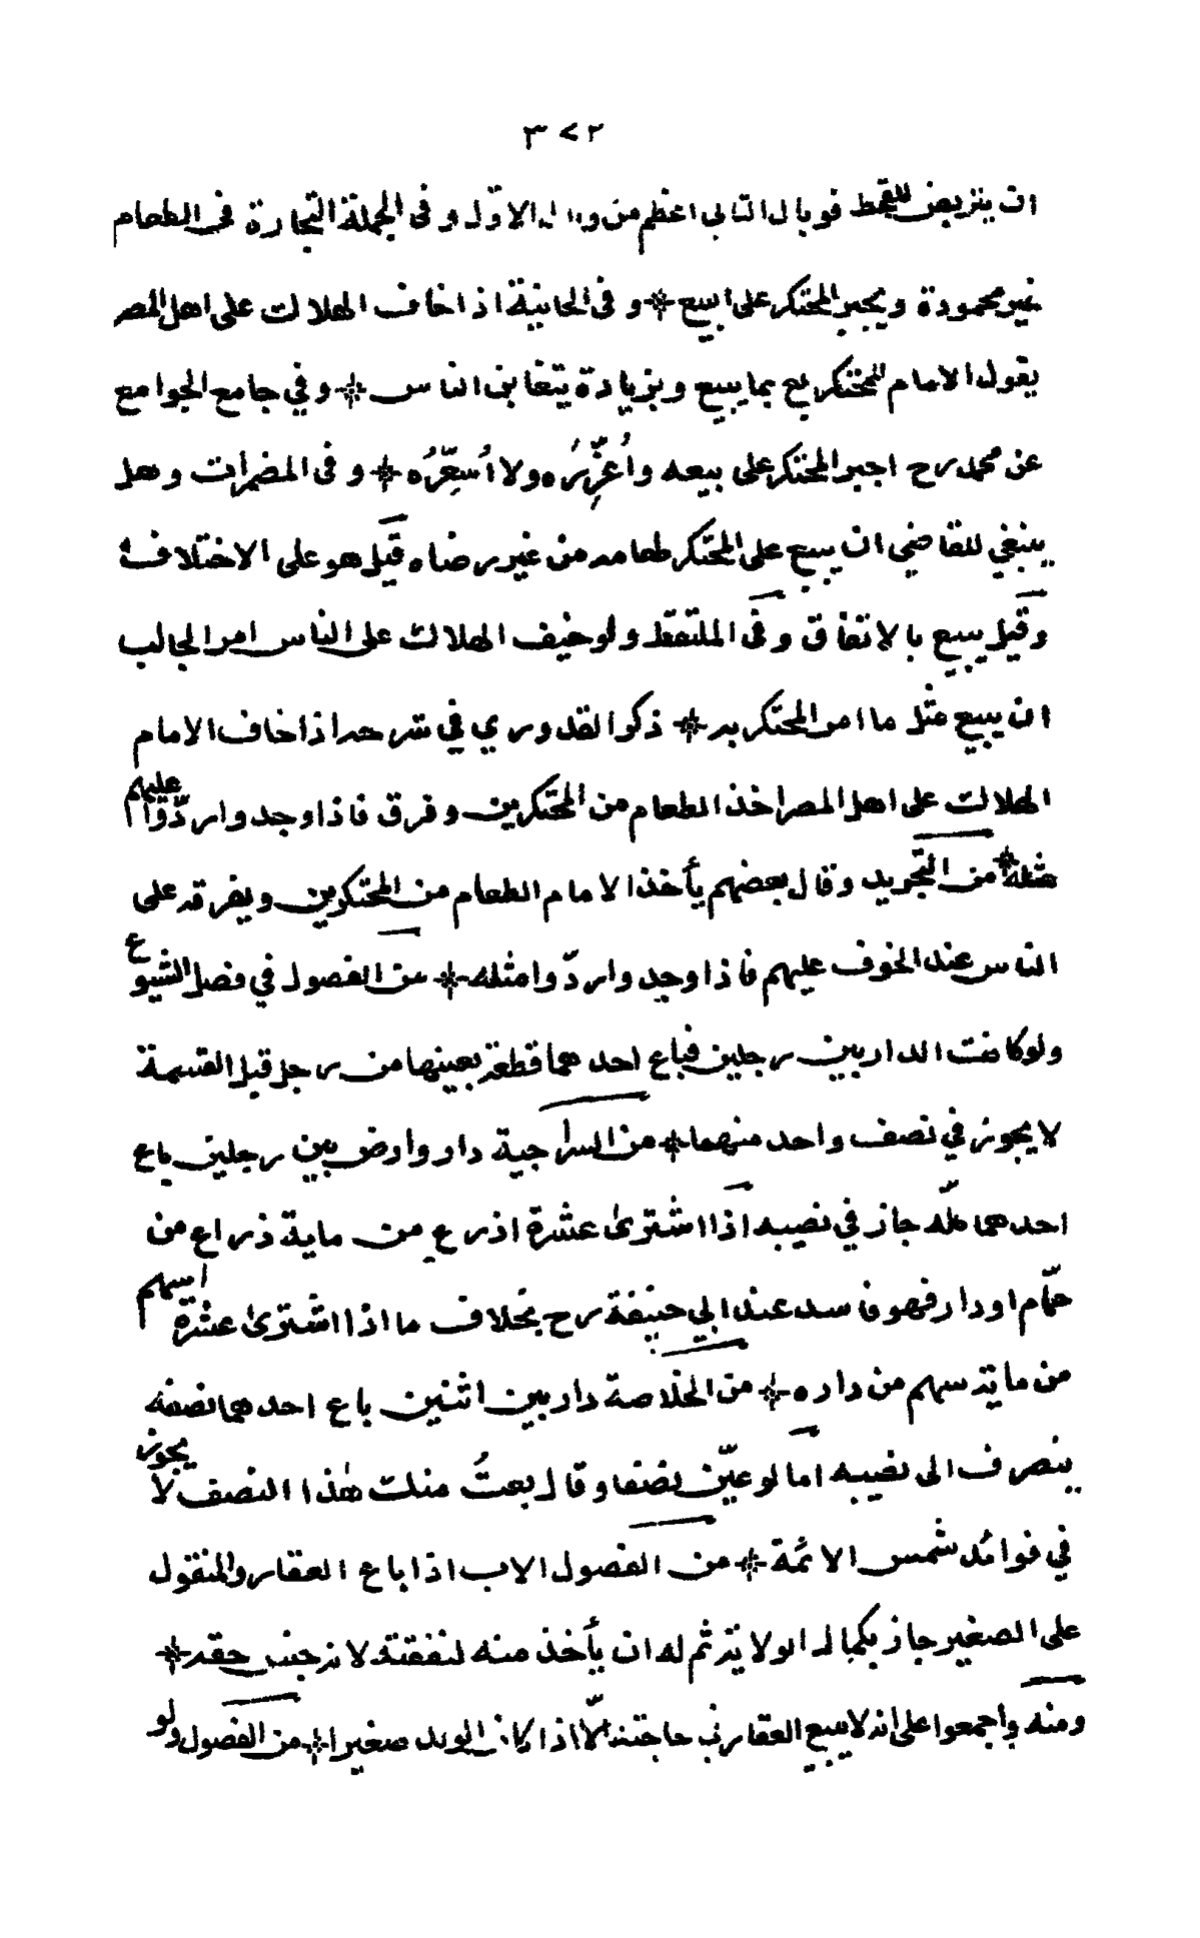 ٣٧٢
ان يتربص للقحط فوبال الثاني اعظم من وبال الاوّل وفي الجملة التجارة في الطعام
غير محمودة ويجبر المحتكر على البيع * وفي الخانية اذا خاف الهلاك على اهل المصر
يقول الامام للمحتكر بع بما يبيع وبزيادة يتغابن الناس * وفي جامع الجوامع
عن محمد رح اجبر المحتكر على بيعه وأُعزِّرُه ولا أُسعِّرُه * وفي المضمرات وهل
ينبغي للقاضي ان يبيع على المحتكر طعامه من غير رضاه قيل هو على الاختلاف
وقيل يبيع بالاتفاق وفي الملتقط ولو خيف الهلاك على الناس امر الجالب
ان يبيع مثل ما امر المحتكر به * ذكر القدوري في شرحه اذا خاف الامام
الهلاك على اهل المصر اخذ الطعام من المحتكرين وفرق فاذا وجدوا ردّوا عليهم
مثله * من التجريد وقال بعضهم يأخذ الامام الطعام من المحتكرين ويفرقه على
الناس عند الخوف عليهم فاذا وجدوا ردّوا مثله * من الفصول في فصل الشيوع
ولو كانت الدار بين رجلين فباع احدهما قطعة بعينها من رجل قبل القسمة
لا يجوز في نصف واحد منهما * من السراجية دار وارض بين رجلين باع
احدهما كلّه جاز في نصيبه اذا اشترىٰ عشرة اذرع من ماية ذراع من
حمّام او دار فهو فاسد عند ابي حنيفة رح بخلاف ما اذا اشترىٰ عشرة اسهم
من ماية سهم من داره * من الخلاصة دار بين اثنين باع احدهما نصفه
ينصرف الى نصيبه اما لو عيّن نصفا وقال بعتُ منك هٰذا النصف لا يجوز
في فوائد شمس الائمة * من الفصول الاب اذا باع العقار والمنقول
على الصغير جاز بكمال الولاية ثم له ان يأخذ منه لنفقته لانه جنس حقه *
ومنه واجمعوا على انه لا يبيع العقار في حاجته الّا اذا كان الولد صغيرا * من الفصول ولو